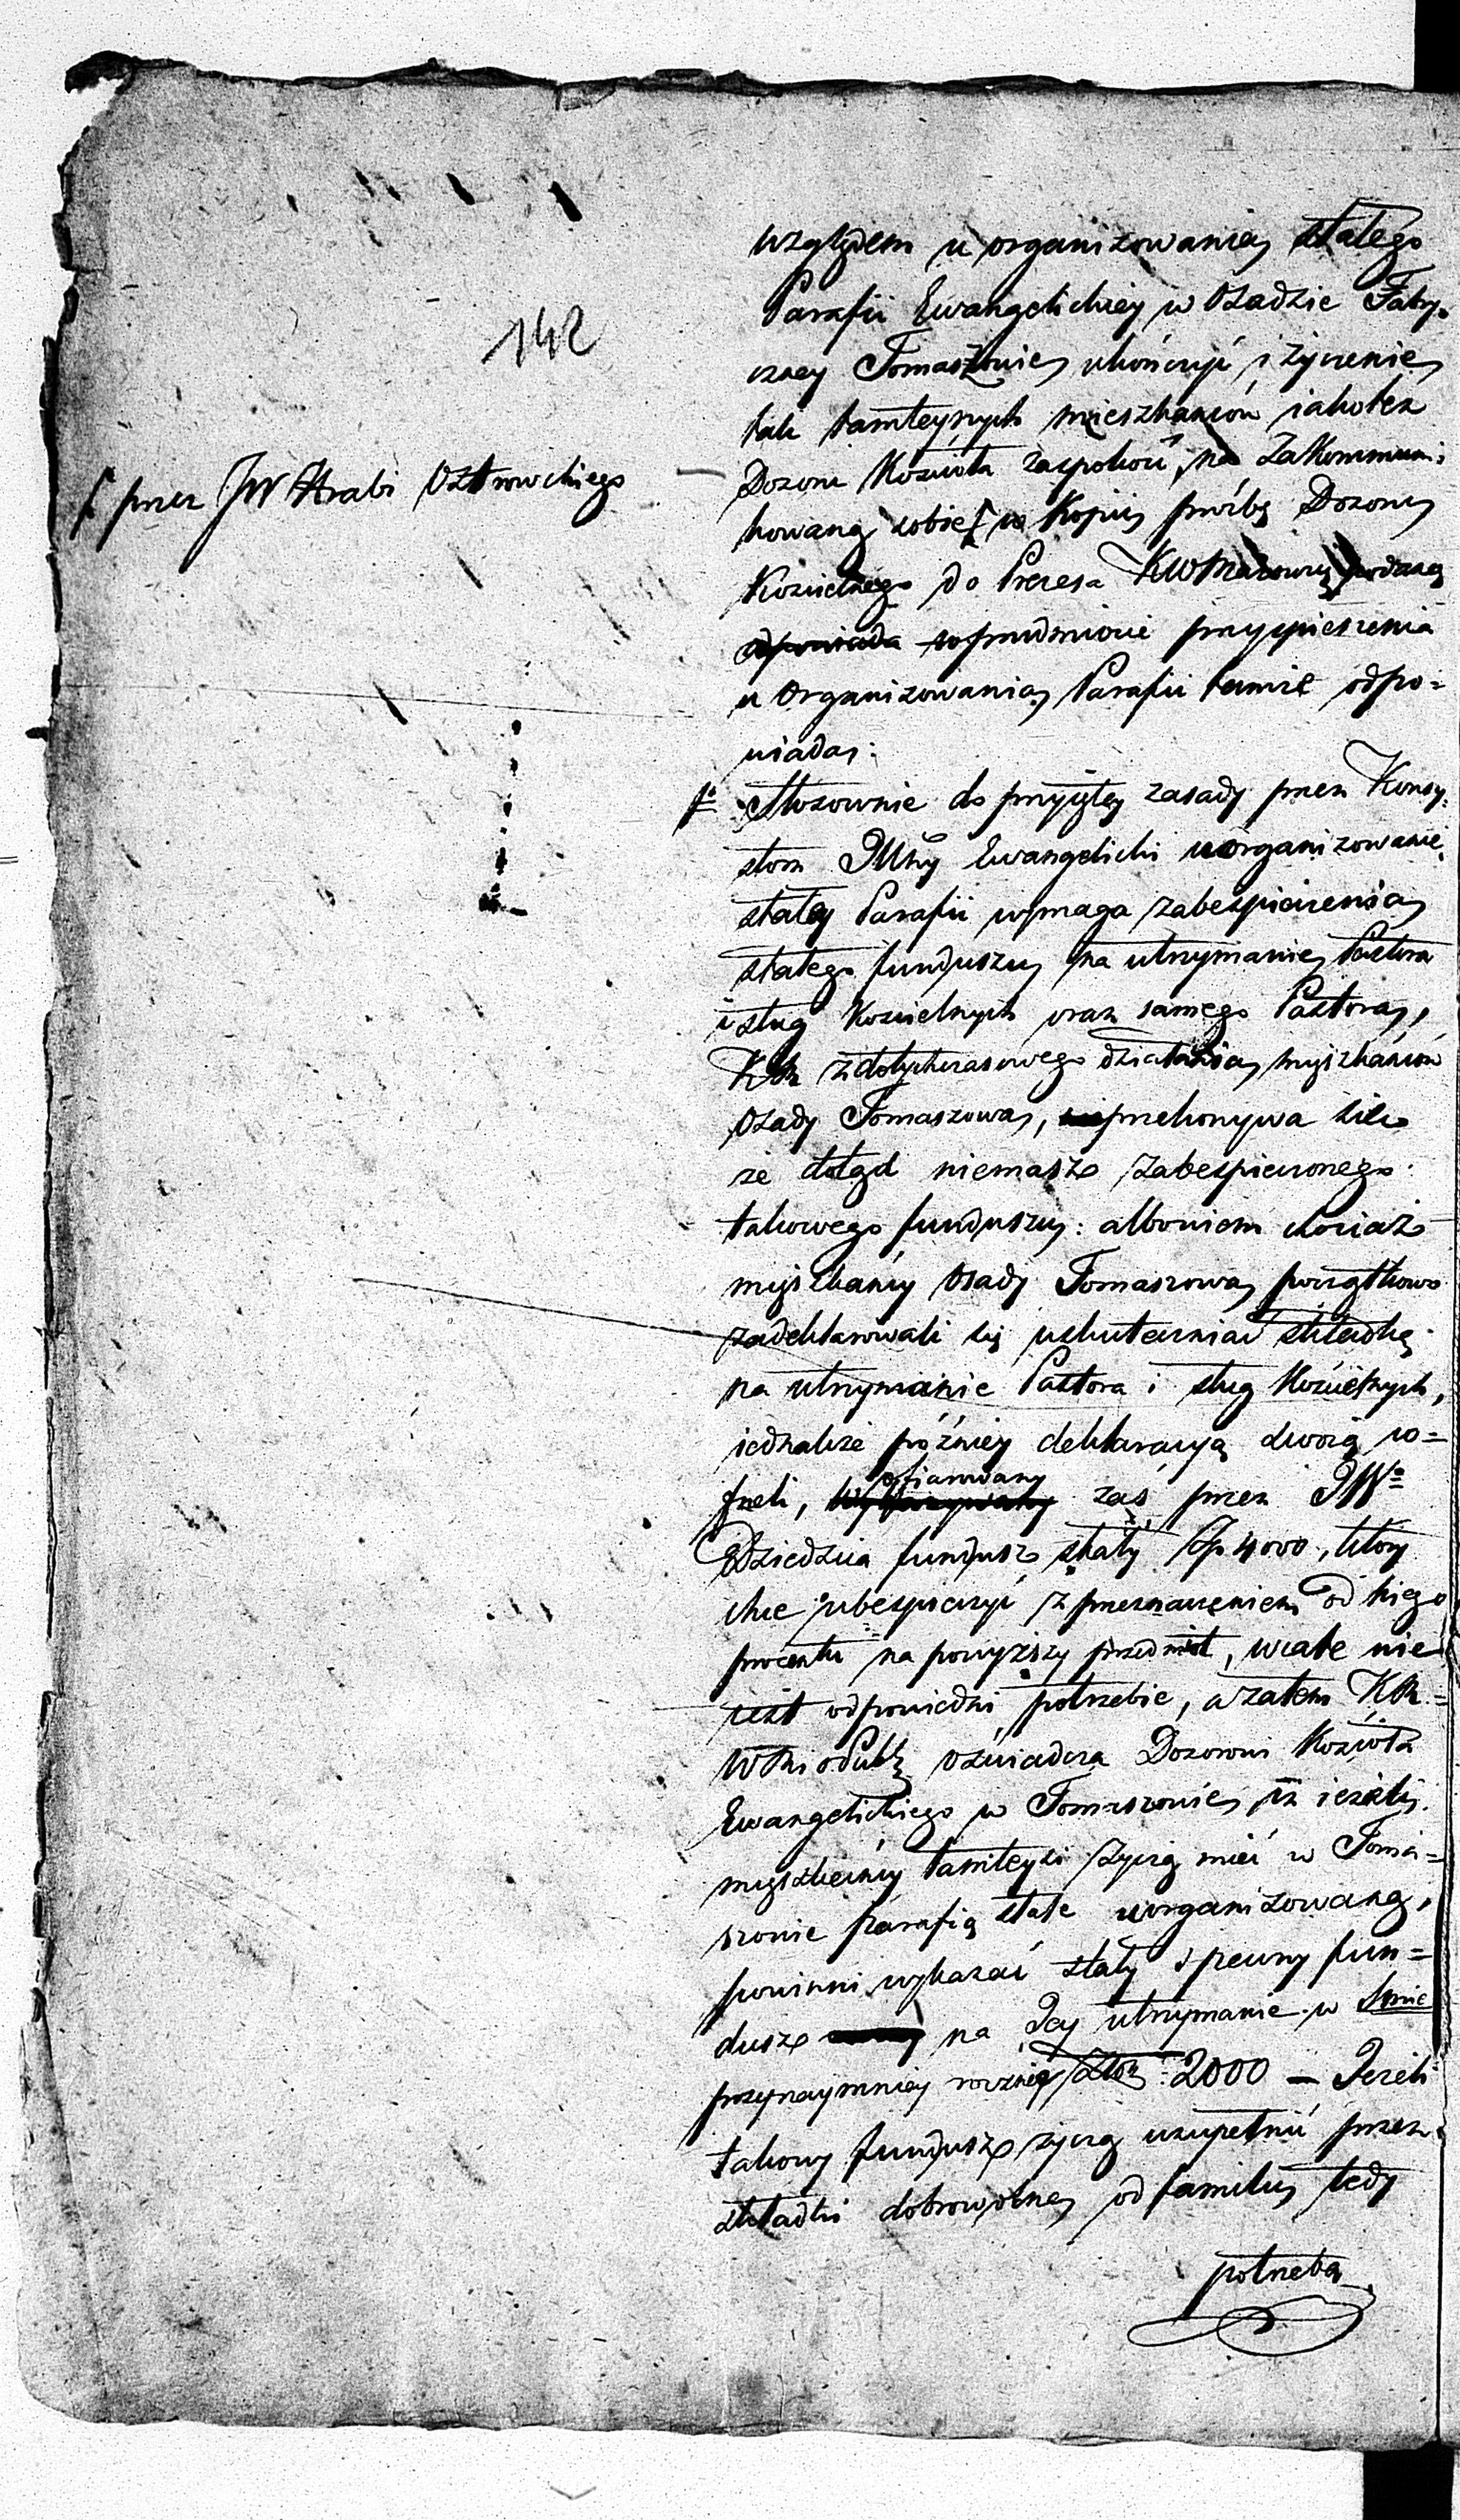 142
względem u organizowania stałego
Parafii Ewangelickiey w Osadzie Fabry-
czney Tomaszowie ukończyć i życzenie
tak tamteyszych mieszkańców iakotéz
Dozoru Kościoła zaspokoić, na Zakommuni-
kowaną sobie ⌈ w Kopii prośbę Dozoru
⌈ przez JW Hrabi Ostrowskiego
Kościelnego do Prezesa KWMazow: podaną
odpowiada w przedmiocie przyspieszenia
u Organizowania Parafii tamże odpo=
wiada:
Stosownie do przyiętey zasady przez Konsy-
storz Ewangelicki uorganizowanie
stałey Parafii wymaga zabespieczenia
stałego funduszu na utrzymanie Pastora
i sług Kościelnych oraz samego Pastora,
KR z dotychczasowego działania mięszkańców
Osady Tomaszowa, przekonywa się
że dotąd niemasz zabespieczonego
takowego funduszu: albowiem chociaż
mięszkańcy Osady Tomaszowa początkowo
zadeklarowali się uskuteczniać składkę
na utrzymanie Pastora i sług Kościelnych,
iednakże późniey deklaracyą swoią co=
fneli, ofiarowany zaś przez JWo
Dziedzica fundusz stały Zp 4000, który
chce ubespieczyć z przeznaczeniem od niego
procentu na powyższy przedmiot, wcale nie
iest odpowiedni potrzebie, a zatem KR
WRiOPubl: oświadcza Dozorowi Kościoła
Ewangelickiego w Tomaszowie, iż ieżeli
mięszkańcy tamteysi życzą mieć w Toma=
szowie parafią stale uorganizowaną,
powinni wykazać stały i pewny fun=
dusz na Jey utrzymanie w Smie
przynaymniey rocznie Złotz: 2000 — Jeżeli
takowy fundusz życzą uzupełnić przez
składki dobrowolne od familii, tedy
potrzeba